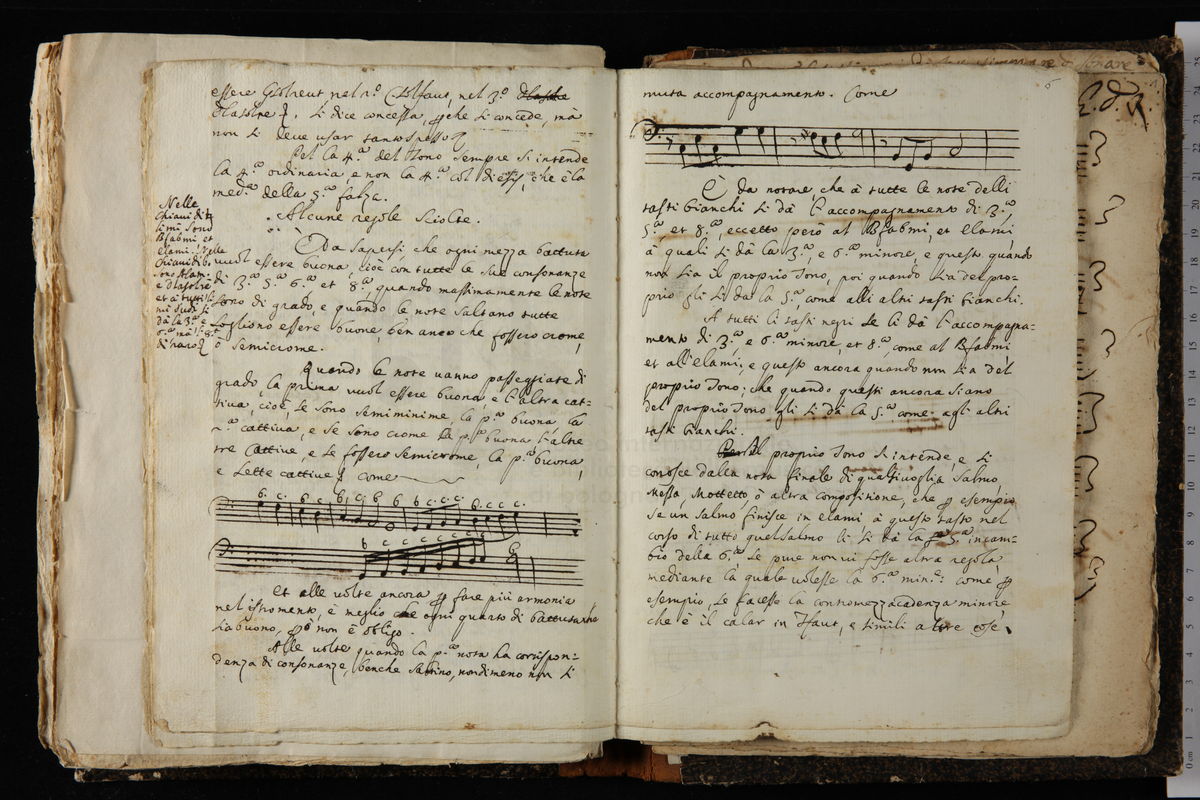 essere Gsolreut nel 1.º Csolfaut, nel 3.º
Alasolre, si dice concessa, che si concede, mà
non si deve usar tanto spesso
Per la 4.ª del Tono sempre si intende
la 4.ª ordinaria e non la 4.ª col diesis, che è la
med.ª della 5.ª falza.
Alcune regole sciolte.
Nelle
Chiavi di
li mi sono
Bfabmi et
elami. Nelle
Chiavi di b.
sono Alam.
e dlasolre
et à tutti li
mi si
dà la 3.ª e
6.ª mà l'8.ª
di raro
È da sapersi, che ogni mezza battuta
vuol essere buona, cioè con tutte le sue consonanze
di 3.ª 5.ª 6.ª et 8.ª quando massimamente le note
sono di grado, e quando le note saltano tutte
vogliono essere buone, ben anco che fossero crome,
ò semicrome.
Quando le note vanno passeggiate di
grado, la prima vuol essere buona, e l'altra cat=
tiva, cioè, se sono semiminime la p.ª buona, la
2.ª cattiva, e se sono crome la p.ª buona, l'altre
tre cattive, e se fossero semicrome, la p.ª buona,
e sette cattive come
b. c. b c b c b c b b c. c. c. b. c c c.
b c c c c c c c
Et alle volte ancora fare più armonia
nel istromento è meglio che ogni quarto di battuta
sia buono, però non è obligo.
Alle volte quando la p.ª nota ha corrispon=
denza di consonanze, benche saltino, nondimeno non si
6
muta accompagnamento. Come
È da notare, che à tutte le note delli
tasti bianchi si dà l'accompagnamento di 3.ª,
5.ª et 8.ª, eccetto però al Bfabmi, et elami,
à quali si dà la 3.ª, e 6.ª minore, e questo quando
non sia il proprio Tono, poi quando sia del pro=
prio gli si dà la 5.ª, come alli altri tasti bianchi.
A tutti li tasti negri se li dà l'accompagna=
mento di 3.ª e 6.ª minore, et 8.ª, come al Bfabmi
et all'elami, e questo ancora quando non sia del
proprio Tono, che quando questi ancora siano
del proprio Tono gli si dà la 5.ª come agli altri
tasti bianchi.
Il proprio Tono s'intende, e si
conosce dalla nota finale di qualsivoglia Salmo,
Messa, Mottetto ò altra compositione, che esempio
se un Salmo finisce in elami à questo tasto nel
corso di tutto quel Salmo li si dà la 5.ª incam=
bio della 6.ª se pure non vi fosse altra regola,
mediante la quale volesse la 6.ª min.e come
esempio, se facesse la contromezzacadenza minore
che è il calar in Ffaut, e simili altre cose.